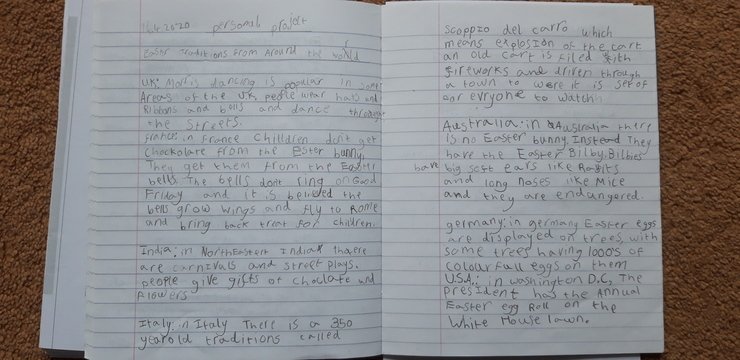 16.4.2020 personal project
Easter traditions from around the world
UK: Morris dancing is popular in some
Areas of the UK, people wear hats and
Ribbons and bells and dance through
the streets.
France: in France Chilldren don't get
Chockolate from the Ester bunny.
They get them from the Easter
bells. The bells don't ring on Good
Friday and it is belived the
bells grow wings and fly to Rome
and bring back treat for children.
India: in NorthEastern India thaere
are carnivals and street plays.
people give gifts of choclate and
flowers
Italy: in Italy There is a 350
yearold traditions called
Scoppio del carro which
means explosion of the cart
an old cart is filed with
fireworks and driven through
a town to were it is set of
for evryone to watch.
Australia: in Australia there
is no Easter bunny. Instead They
have the Easter Bilby. Bilbies
have big soft ears like Rabits
and long Noses like Mice
and they are endangered.
germany: in germany Easter eggs
are displayed on trees, with
some trees having 1000's of
colourfull eggs on them
U.S.A.: in washington D.C, The
President has the Annual
Easter egg Roll on the
White House lawn.